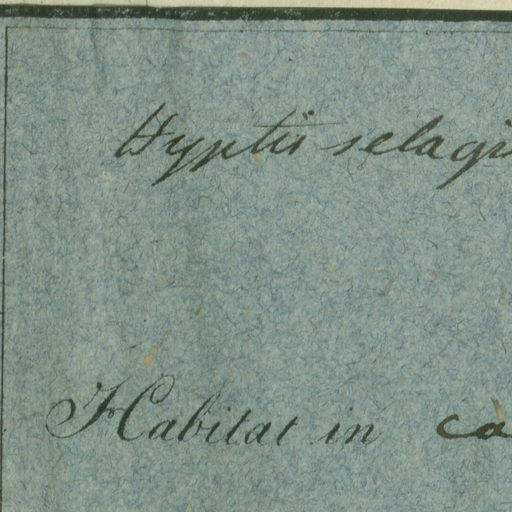 Hyptis selagi
Habitat in ca